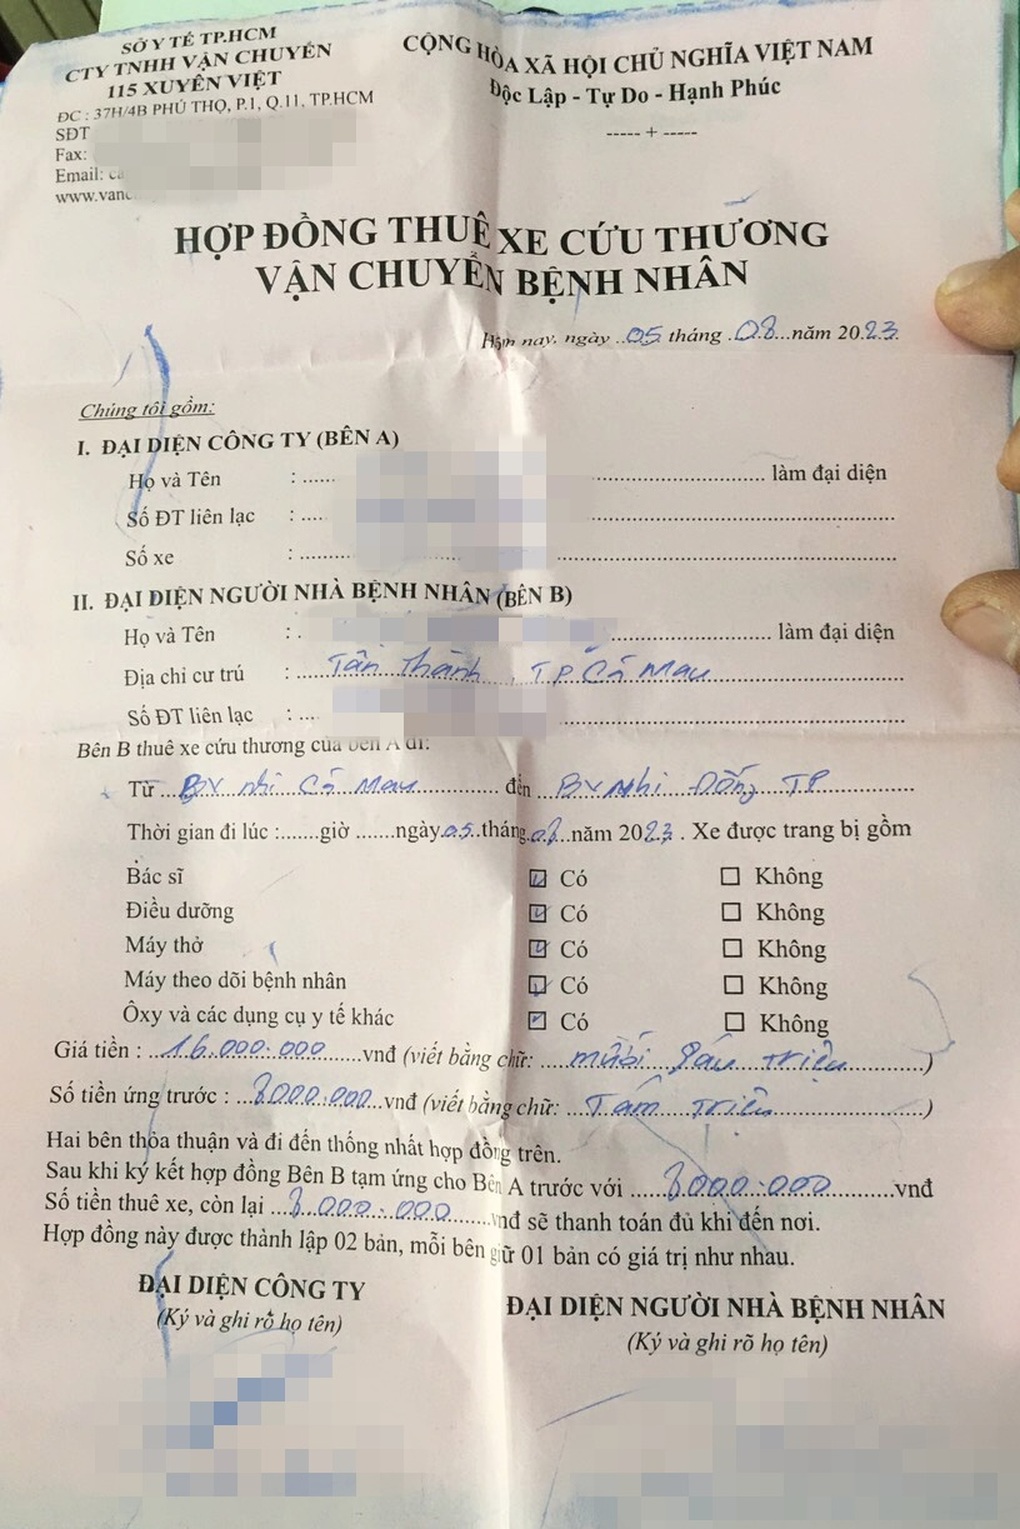 SỞ Y TẾ TP.HCM
CTY TNHH VẬN CHUYỂN
115 XUYÊN VIỆT
ĐC : 37H/4B PHÚ THỌ, P.1, Q.11, TP.HCM
SĐT
Fax:
Email: ca
www.vanc
CỘNG HÒA XÃ HỘI CHỦ NGHĨA VIỆT NAM
Độc Lập - Tự Do - Hạnh Phúc
----- + -----
HỢP ĐỒNG THUÊ XE CỨU THƯƠNG
VẬN CHUYỂN BỆNH NHÂN
Hôm nay, ngày ..05 tháng .08...năm 2023.
Chúng tôi gồm:
I. ĐẠI DIỆN CÔNG TY (BÊN A)
Họ và Tên : ........ làm đại diện
Số ĐT liên lạc : ........
Số xe : ........
II. ĐẠI DIỆN NGƯỜI NHÀ BỆNH NHÂN (BÊN B)
Họ và Tên : ........ làm đại diện
Địa chỉ cư trú : ....Tân Thành, TP Cà Mau........
Số ĐT liên lạc : ........
Bên B thuê xe cứu thương của bên A đi:
Từ ...BV nhi Cà Mau........ đến ...BV Nhi Đồng TP........
Thời gian đi lúc :......giờ .......ngày 05..tháng 08...năm 2023 . Xe được trang bị gồm
Bác sĩ ☑ Có ☐ Không
Điều dưỡng ☑ Có ☐ Không
Máy thở ☑ Có ☐ Không
Máy theo dõi bệnh nhân ☑ Có ☐ Không
Ôxy và các dụng cụ y tế khác ☑ Có ☐ Không
Giá tiền : ..16.000.000......vnđ (viết bằng chữ: ....mười sáu triệu........)
Số tiền ứng trước : ...8000.000..vnđ (viết bằng chữ: ...Tám Triệu........)
Hai bên thỏa thuận và đi đến thống nhất hợp đồng trên.
Sau khi ký kết hợp đồng Bên B tạm ứng cho Bên A trước với .....8000.000........vnđ
Số tiền thuê xe, còn lại ...8.000.000......vnđ sẽ thanh toán đủ khi đến nơi.
Hợp đồng này được thành lập 02 bản, mỗi bên giữ 01 bản có giá trị như nhau.
ĐẠI DIỆN CÔNG TY
(Ký và ghi rõ họ tên)
ĐẠI DIỆN NGƯỜI NHÀ BỆNH NHÂN
(Ký và ghi rõ họ tên)